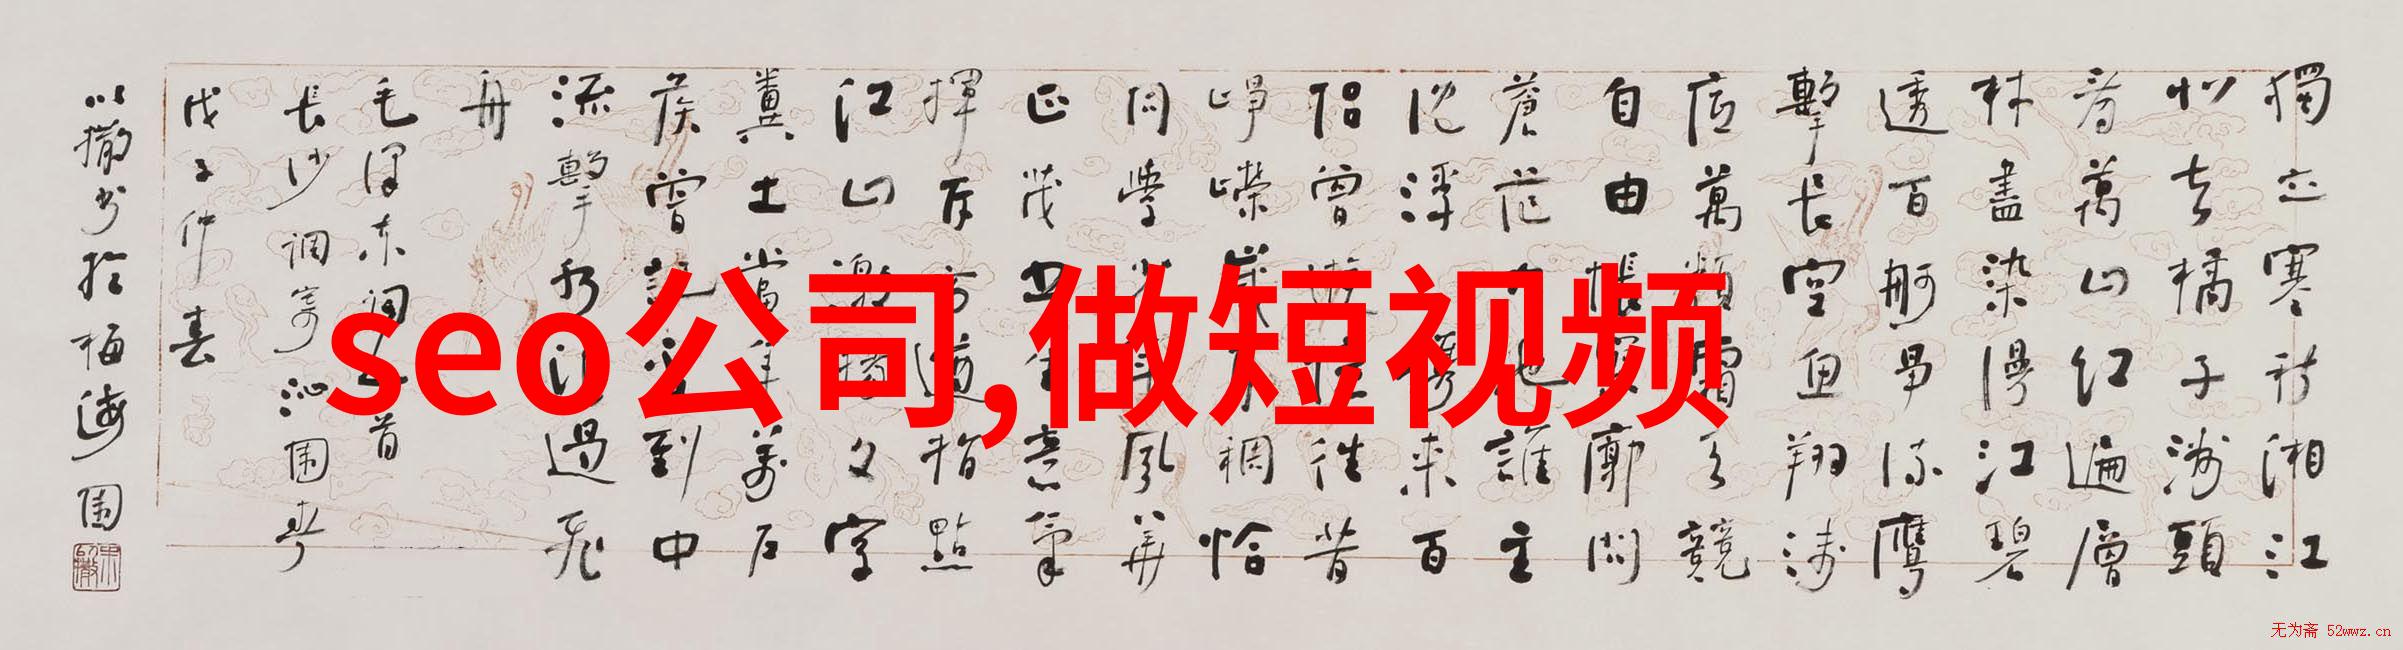 獨立寒秋湘江
北去橘子洲頭
看萬山红遍層
林盡染漫江碧
透百舸爭流鷹
擊長空魚翔淺
底萬類霜天競
自由悵寥廓問
蒼茫大地誰主
沈浮攜來百
侣曾遊憶往昔
崢嶸歲月稠恰
同學少年風華
正茂書生意氣
揮斥方遒指點
江山激揚文字
糞土當年萬户
侯曾記否到中
流擊水浪遏飛
舟
毛澤东词一首
長沙 调寄沁园春
戊子仲春
以撒书於梅海園
seo公司,做短视频
无为斋 52wwz.cn